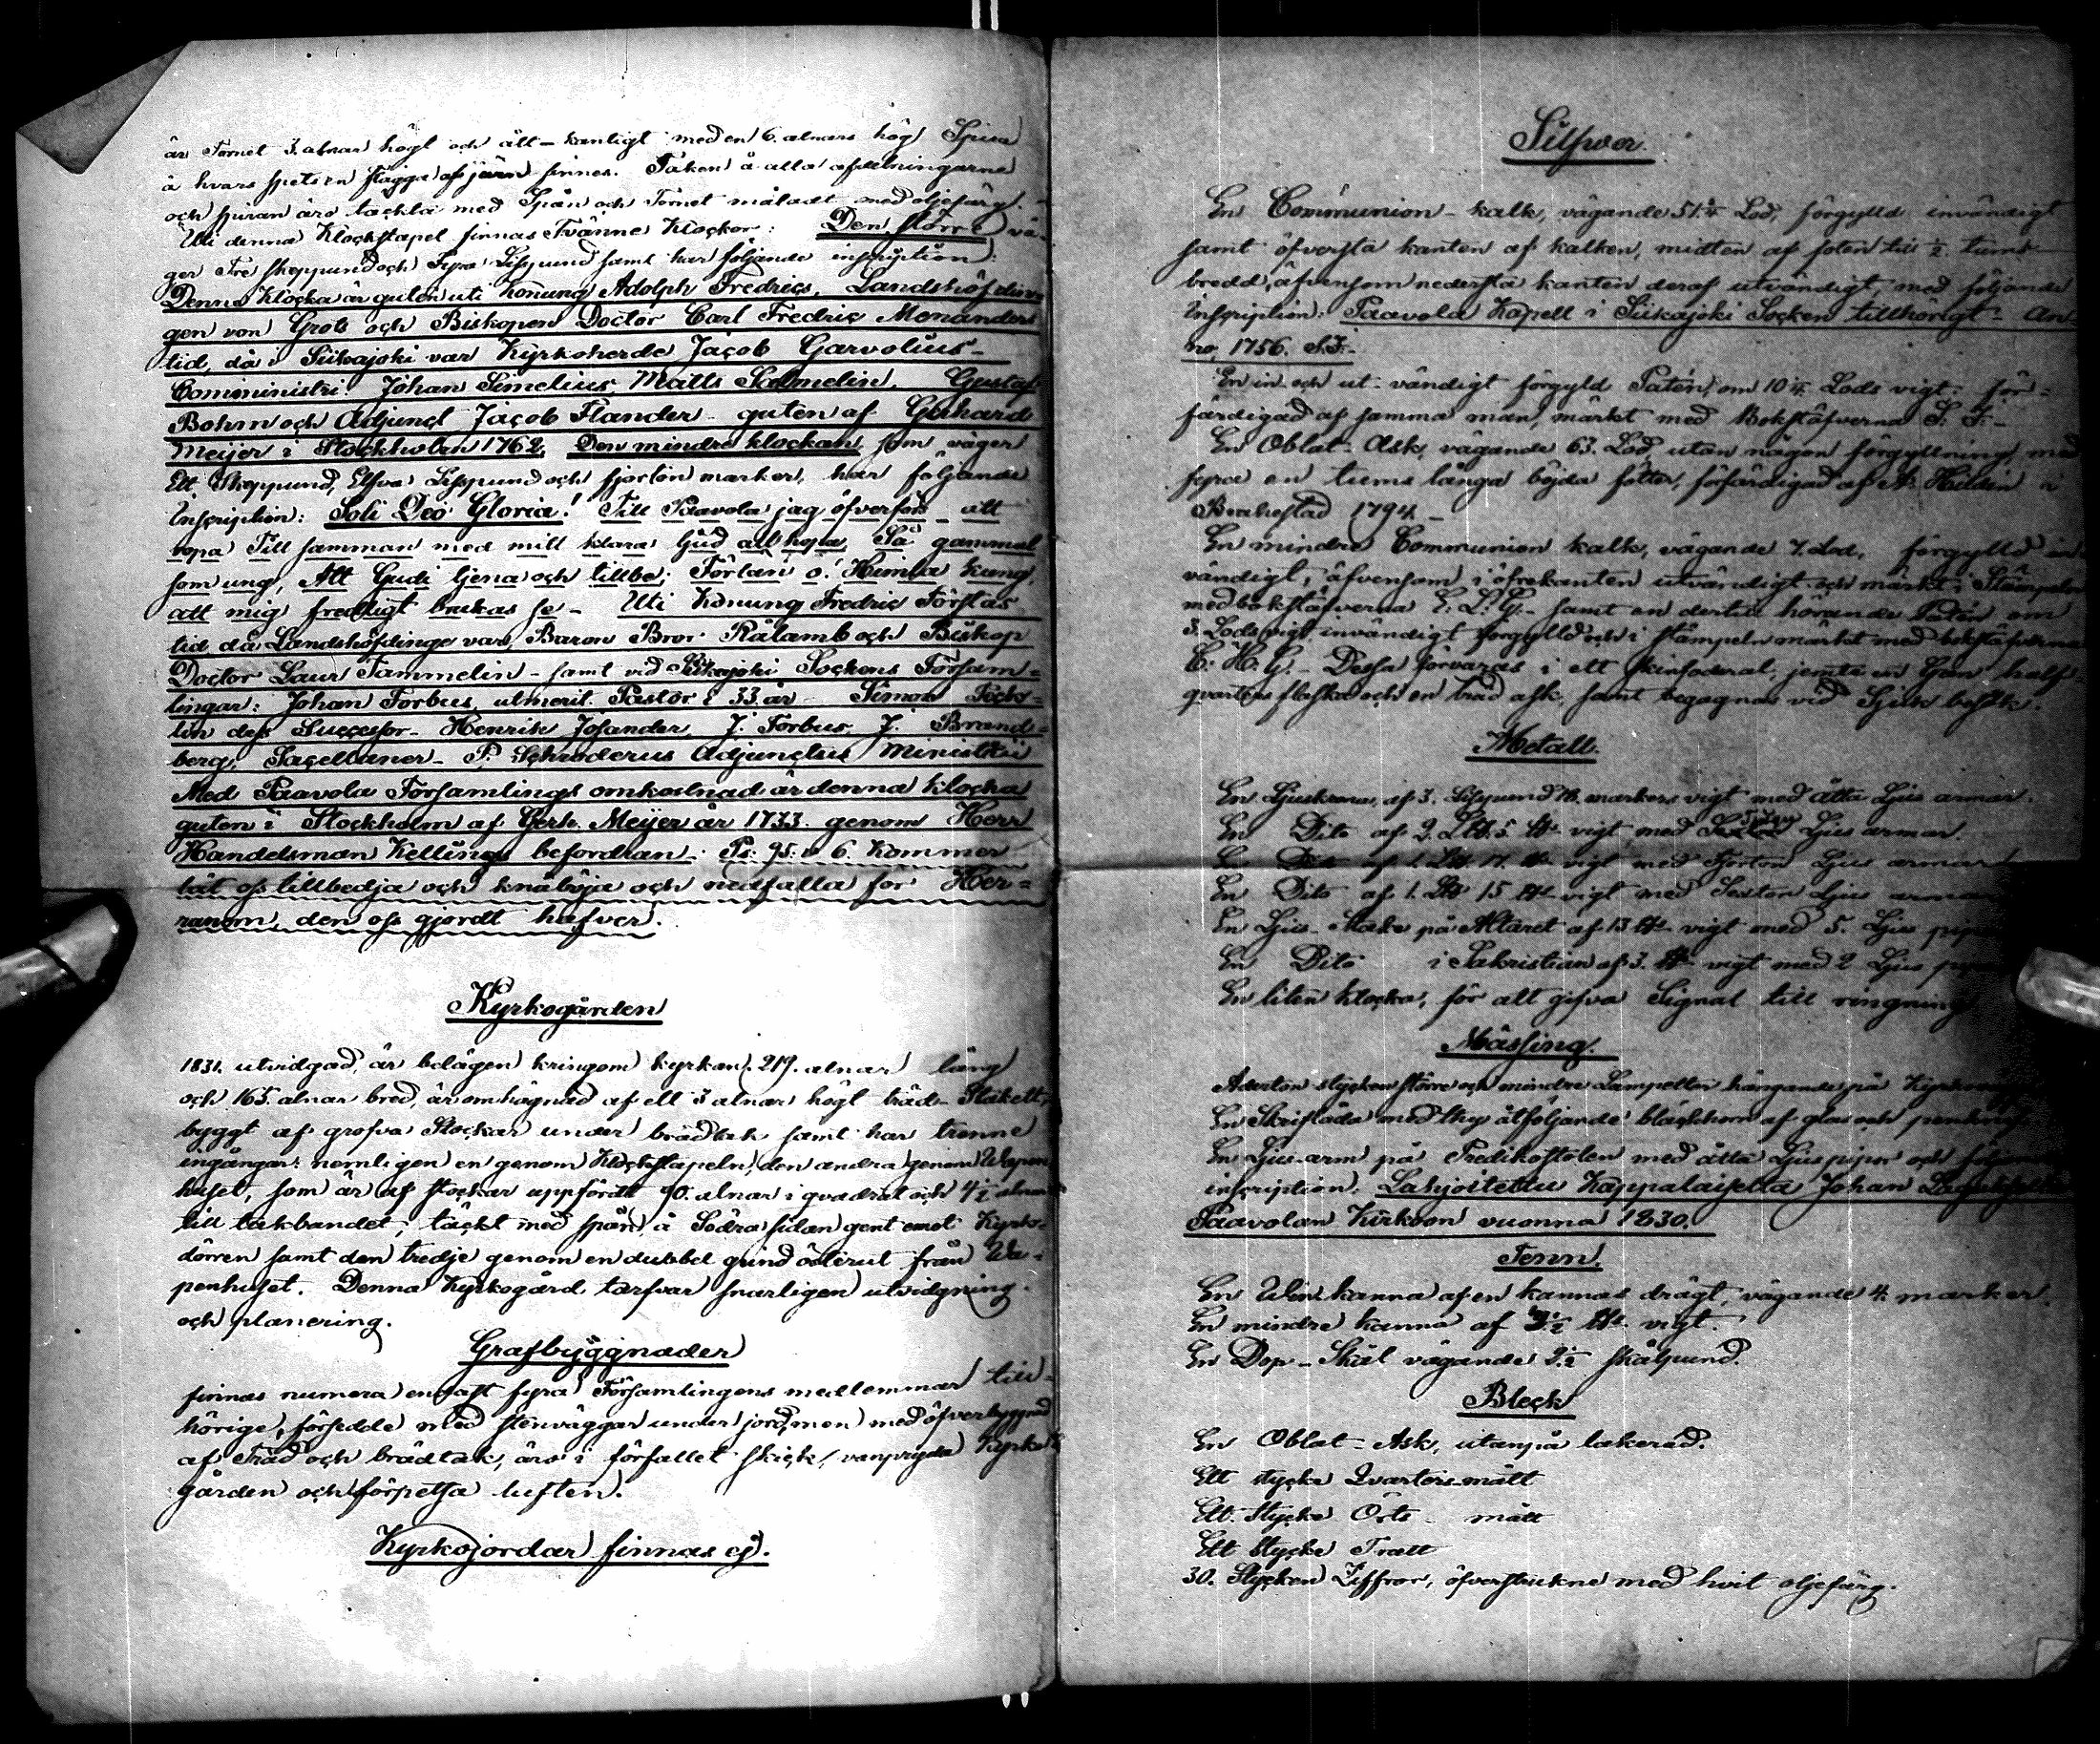 är Tornet 3. alnar högt och ått-kantigt med en 6. alnars hög Spira
å hvars spets en flagga af järn finnes. Taken å alla afdelningarne
och spiran äro täckta med Spån och Tornet måladt med oljefärg.
Uti denna Klockstapel finnas Tvänne Klockor: Den större vä-
ger Tre skeppund och Fyra Lispund samt har följande inscription:
Denna Klocka är guten uti Konung Adolph Fredrics, Landshöfdin-
gen von Grots och Biskopen Doctor Carl Fredric Menanders
tid, då i Siikajoki var Kyrkoherde Jacob Garvolius-
Comministri Johan Simelius, Matts Salmelin, Gustaf
Bohm och Adjunct Jacob Flander - guten af Gerhard
Meijer i Stockholm 1762. Den mindre klockan, som väger
Ett. Skeppund, Elfva Lispund och fjorton marker, har följande
Inscription: Soli Deo Gloria! Till Paavola jag öfverförd - att
ropa Till samman med mitt klara ljud all hopa, Så gammal
som ung, Att Gudi tjena och tillbe; Förlän o! Himla Kung
att mig fredligt brukas se - Uti Konung Fredric Förstas
tid då Landshöfdinge var, Baron Bror Rålamb och Biskop
Doctor Laur Tammelin - samt vid Siikajoki Sockens Försam=
lingar: Johan Forbus, utmerit. Pastor i 33 år - Simon
lin dess Successor - Henrik Josander J. Forbus J. Brand=
berg, Sacellaner - P. Schroderus Adjunctus Ministrii
Med Paavola Församlings omkostnad är denna Klocka
guten i Stockholm af Gerh. Meijer år 1733. genom Herr
Handelsman Kellings befordran - Ps: 95: v 6. Kommer
låt oss tillbedja och knäböja och nedfalla för Her=
ranom, den oss gjordt hafver.
Kyrkogården
1831. utvidgad, är belägen kringom kyrkan. 219. alnar lång
och 165. alnar bred, är omhägnad af ett 3 alnar högt träd-Stakett,
byggt af grofva Stockar under brädtak samt har trenne
ingångar: nemligen en genom Klockstapeln, den andra genom Wapen
huset, som är af stockar uppfördt 90. alnar i qvadrat och 4½ alnar
till takbandet, täckt med spån, å Södra sidan gent emot Kyrko-
dörren samt den tredje genom en dubbel grind österut från Wa-
penhuset. Denna Kyrkogård tarfvar snarligen utvidgning
och planering.
Grafbyggnader
finnas numera endast fyra Församlingens medlemmar till-
hörige, försedde med stenväggar under jord, men med öfverbyggnad
af Träd och brädtak, äro i förfallet skick, vanpryda Kyrko
gården och förpesta luften.
Kyrkojordar finnas ej.
Silfver.
En Communion-kalk, vägande 51¼ Lod, förgylld invändigt
samt öfversta kanten af kalken, midten af foten till ½. tums
bredd, äfvensom nedersta kanten deraf utvändigt med följande
Inscription: Paavola Kapell i Siikajoki Socken tillhörigt - An-
no 1756. S.J.-
En in- och ut-vändigt förgyld Patén, om 10¼ Lods vigt, för-
färdigad af samma man, märkt med Bokstäfverna S. J. -
En Oblat-Ask, vägande 63. Lod, utan någon förgyllning, med
fyra en tums långa böjda fötter, förfärdigad af A. Hedin i
Brahestad 1794 -
En mindre Communion kalk, vägande 7. Lod, förgylld in-
vändigt, äfvensom i öfrekanten utvändigt och märkt i Stämpeln
med bokstäfverna E. L. G. - samt en dertill hörande Patén om
3. Lods vigt, invändigt förgylld och i stämpeln märkt med bokstäfverna
C. H. G. - Dessa förvaras i ett skinfoderal, jemte en half
qvarters flaska och en bräd ask, samt begagnas vid Sjuk besök.
Metall.
En Ljuskrona, af 3. Lispund 16. markers vigt med åtta Ljus armar.
En Dito af 2. L℔. 5 ℔. vigt med Tjugo Ljus armar.
En Dito af 1. L℔ 17. ℔. vigt med Fjorton Ljus armar
En Dito af 1. L℔ 15 ℔. vigt med Sexton Ljus armar
En Ljus-Stake på Altaret af 13 ℔. vigt med 5. Ljus pipor
En Dito i Sakristian af 3. ℔. vigt med 2 Ljus pipor
En liten Klocka, för att gifva Signal till ringning
Mässing.
Aderton stycken större och mindre Lampetter hängande på Kyrko
En Skriflåda med thy åtföljande bläckhorn af glas och
En Ljus-arm på Predikstolen med åtta Ljus pipor och
inscription, Lahjoitettu Kappalaiselta Johan
Paavolan Kirkoon vuonna 1830.
Tenn.
En Win kanna af en kannas drägt, vägande 4. marker.
En mindre kanna af 3½ ℔. vigt.
En Dop-Skål vägande 2½ skålpund.
Bleck
En Oblat-Ask, utanpå lakerad.
Ett stycke Qvarters-mått
Ett. Stycke Örts - mått
Ett Stycke Tratt
30. Stycken Ziffror, öfverstrukne med hvit oljefärg.